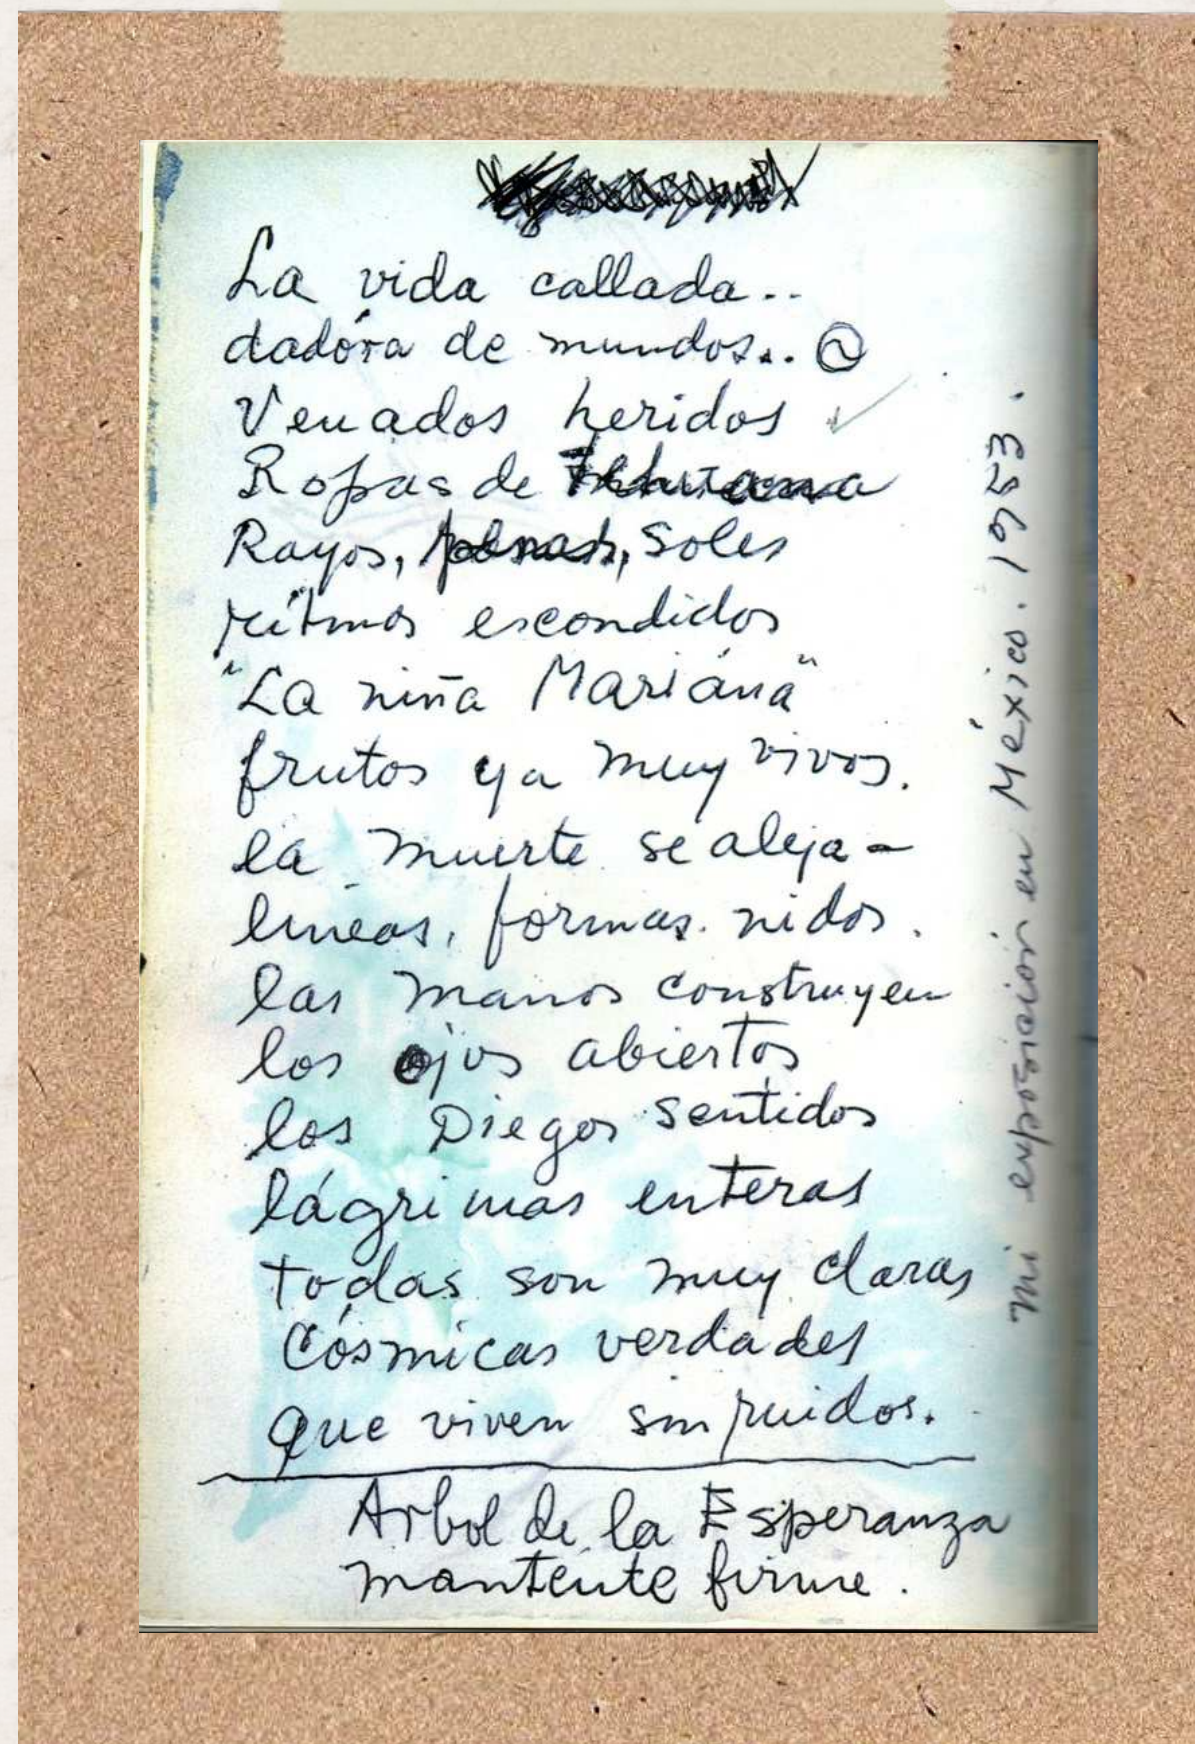 La vida callada..
dadora de mundos..
Venados heridos
Ropas de Tehuana
Rayos, penas, Soles
ritmos escondidos
"La niña Mariana"
frutos ya muy vivos.
la muerte se aleja –
lineas, formas. nidos.
las manos construyen
los ojos abiertos
los Diegos sentidos
lágrimas enteras
todas son muy claras
Cósmicas verdades
que viven sin ruidos.
Arbol de la Esperanza
mantente firme.
mi exposición en México. 1953.